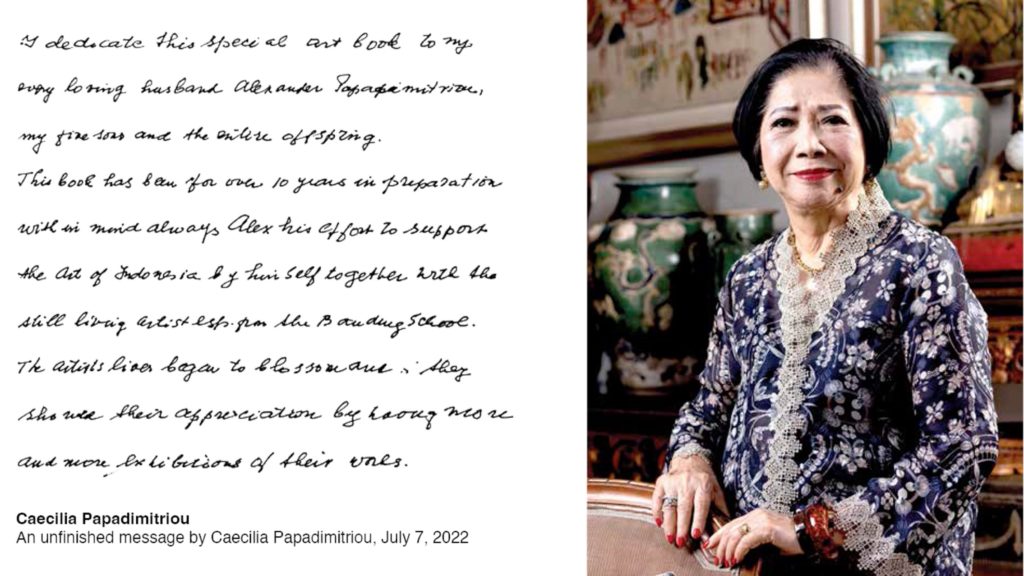 I dedicate this special art book to my
every loving husband Alexander Papapamitriou,
my five sons and the entire offspring.
This book has been for over 10 years in preparation
with in mind always Alex his effort to support
the art of Indonesia by himself together with the
still living artist esp. from the Bandung School.
The artists lives began to blossom and : they
showed their appreciation by having more
and more exhibitions of their works.
Caecilia Papadimitriou
An unfinished message by Caecilia Papadimitriou, July 7, 2022